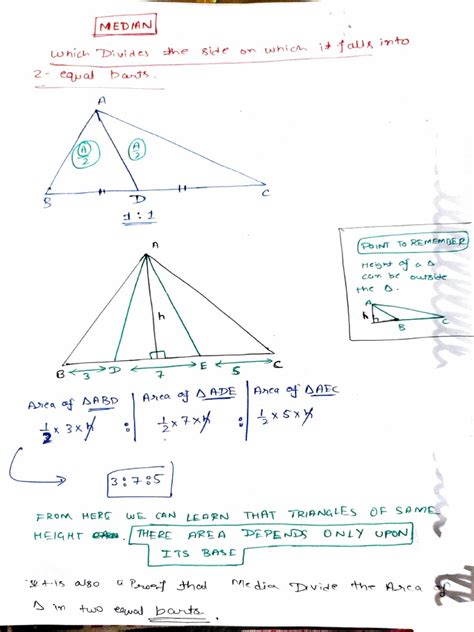 MEDIAN
Which Divides the side on which it falls into
2- equal parts.
A
A/2 A/2
B D C
1:1
A
h
B 3 D 7 E 5 C
POINT TO REMEMBER
Height of a Δ
can be outside
the Δ.
A
h
B C
Area of ΔABD | Area of ΔADE | Area of ΔAEC
1/2 × 3 × h : 1/2 × 7 × h : 1/2 × 5 × h
3:7:5
FROM HERE WE CAN LEARN THAT TRIANGLES OF SAME
HEIGHT THERE AREA DEPENDS ONLY UPON
ITS BASE
It is also a Proof that Media Divide the Area of
Δ in two equal parts.